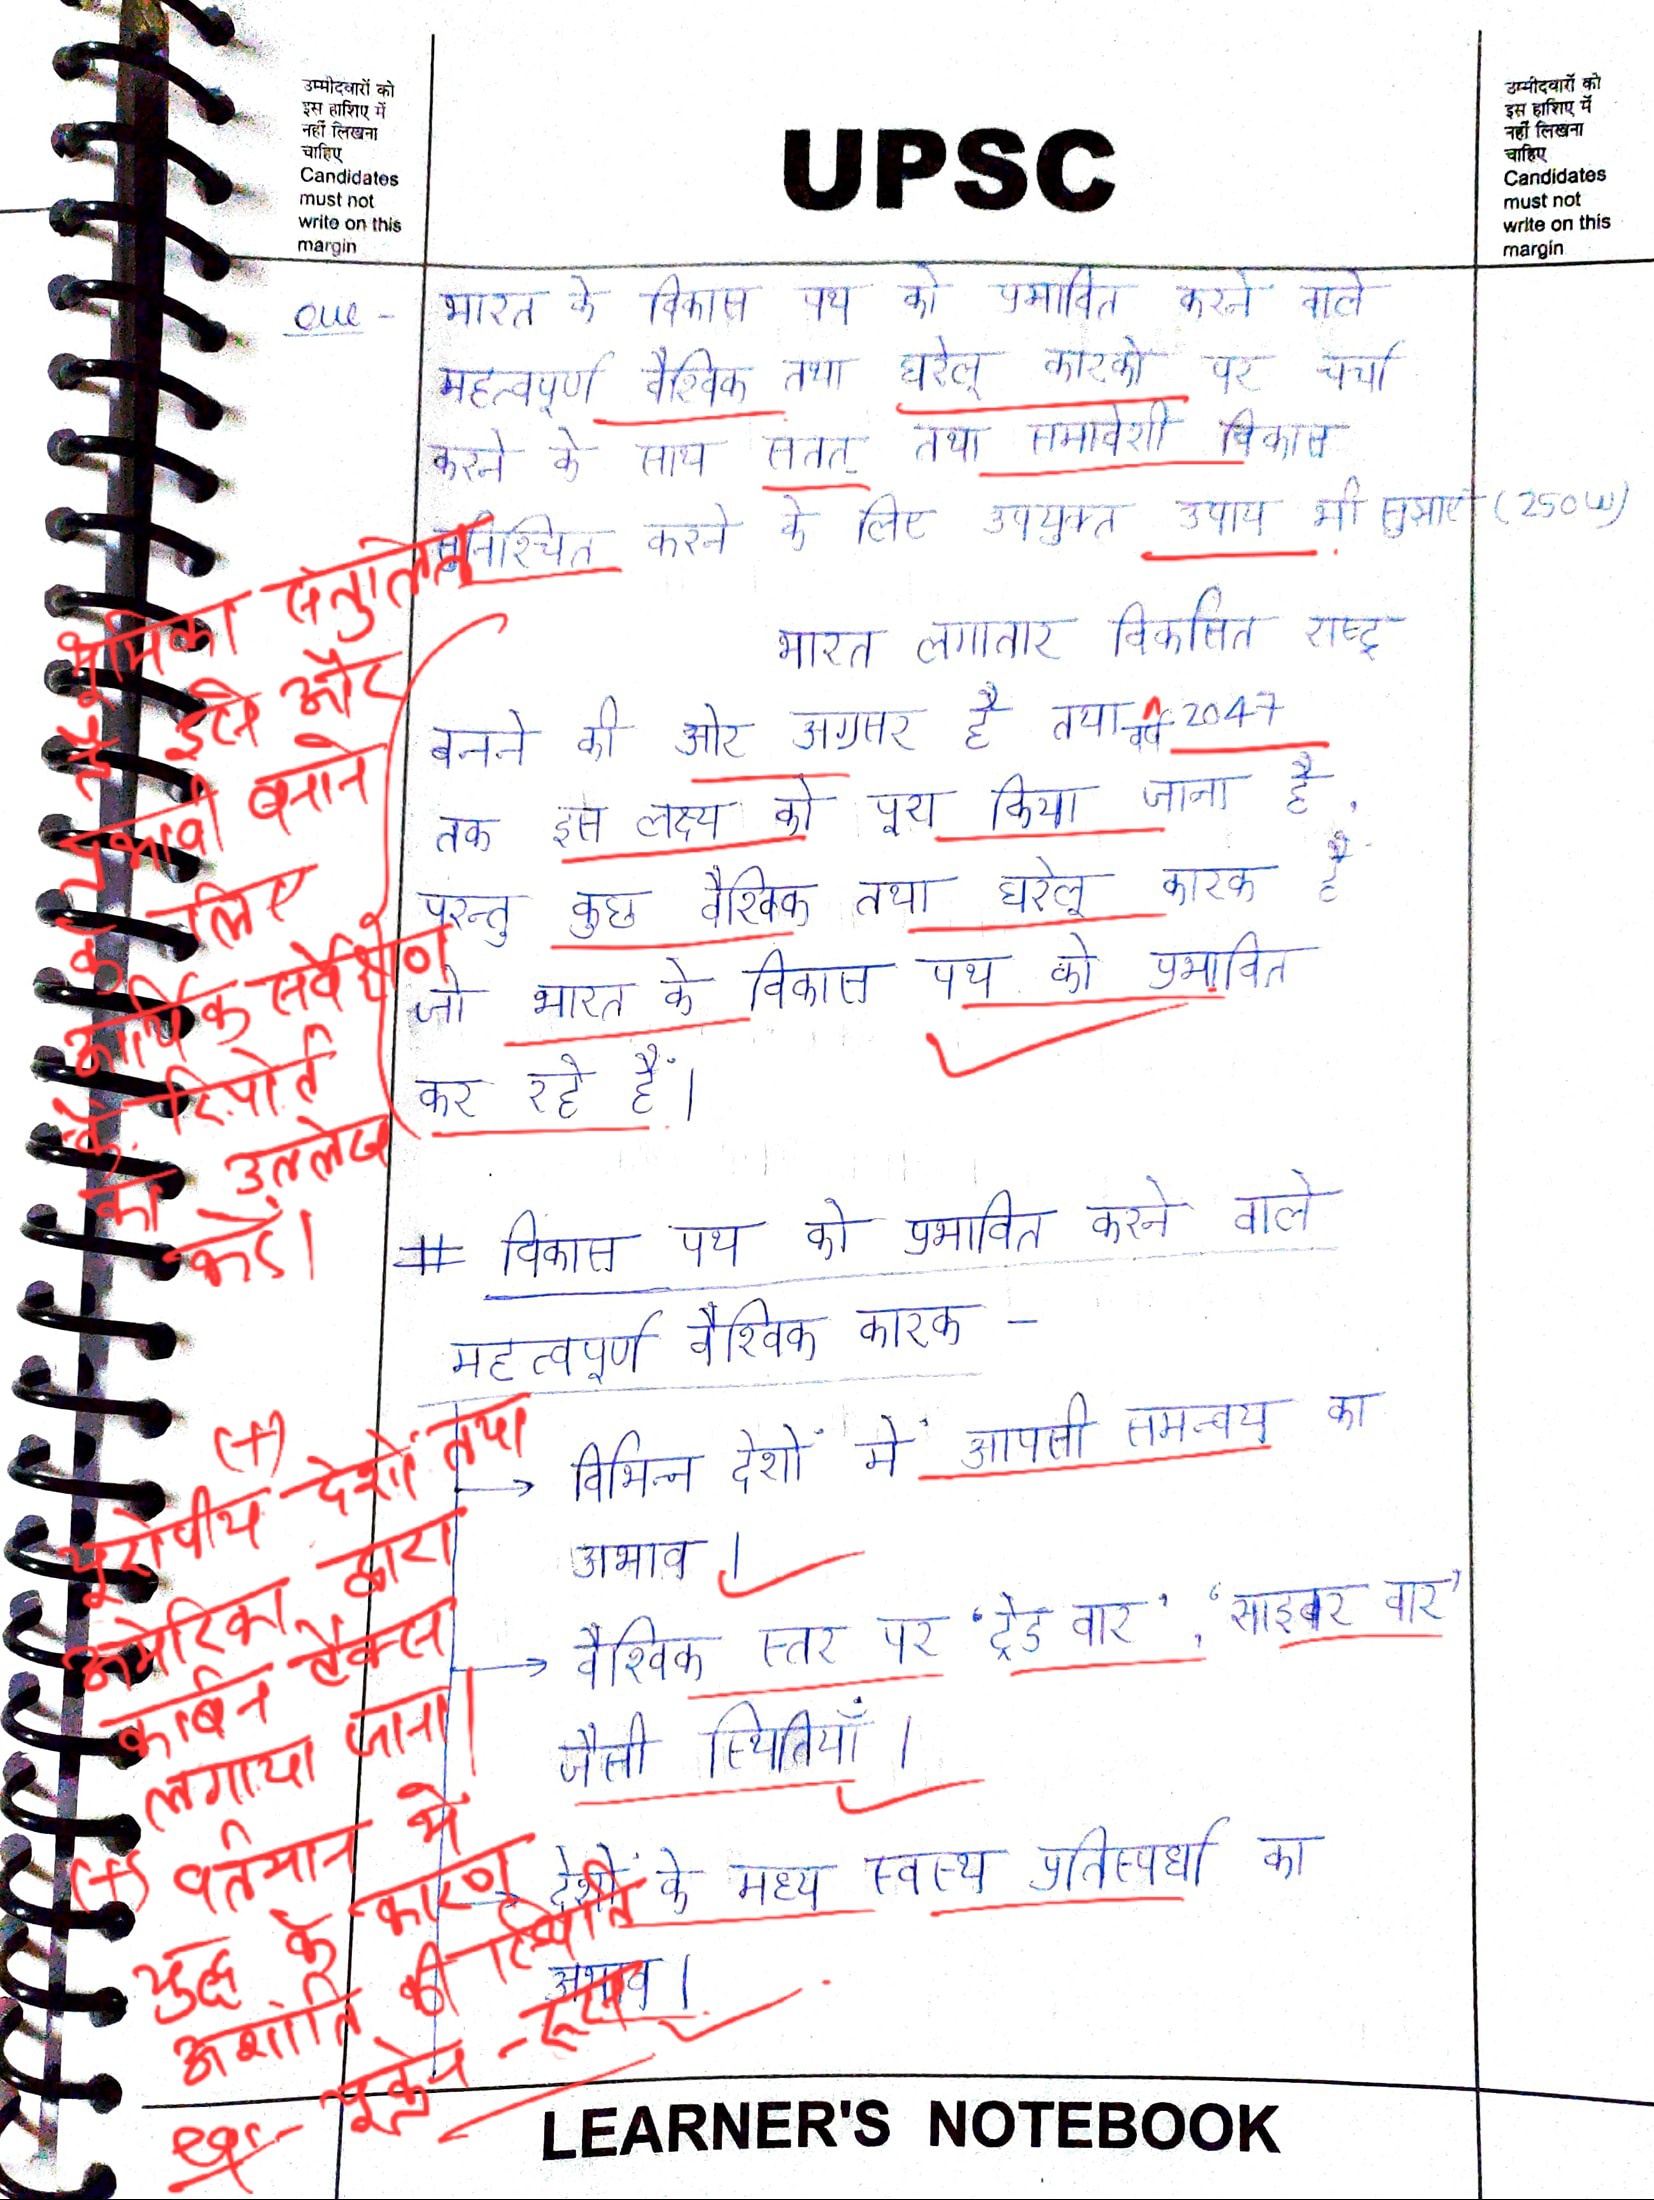 उम्मीदवारों को
इस हाशिए में
नहीं लिखना
चाहिए
Candidates
must not
write on this
margin
UPSC
उम्मीदवारों को
इस हाशिए में
नहीं लिखना
चाहिए
Candidates
must not
write on this
margin
भारत के विकास पथ को प्रभावित करने वाले
महत्वपूर्ण वैश्विक तथा घरेलू कारको पर चर्चा
करने के साथ सतत् तथा समावेशी विकास
सुनिश्चित करने के लिए उपयुक्त उपाय भी सुझाएं (250W)
भारत लगातार विकसित राष्ट्र
बनने की ओर अग्रसर है तथा वर्ष 2047
तक इस लक्ष्य को पूरा किया जाना है,
परन्तु कुछ वैश्विक तथा घरेलू कारक है
जो भारत के विकास पथ को प्रभावित
कर रहे हैं।
भूमिका संतुलित
है इसे और
प्रभावी बनाने
के लिए
आर्थिक सर्वेक्षण
के रिपोर्ट
का उल्लेख
करें।
# विकास पथ को प्रभावित करने वाले
महत्वपूर्ण वैश्विक कारक -
→ विभिन्न देशों में आपसी समन्वय का
अभाव।
→ वैश्विक स्तर पर 'ट्रेड वार', 'साइबर वार'
जैसी स्थितियाँ।
→ देशों के मध्य स्वस्थ प्रतिस्पर्धा का
अभाव।
(+)
यूरोपीय देशों तथा
अमेरिका द्वारा
कार्बन टैक्स
लगाया जाना।
(+) वर्तमान में
युद्ध के कारण
अशांति की स्थिति
यूक्रेन - रूस
LEARNER'S NOTEBOOK